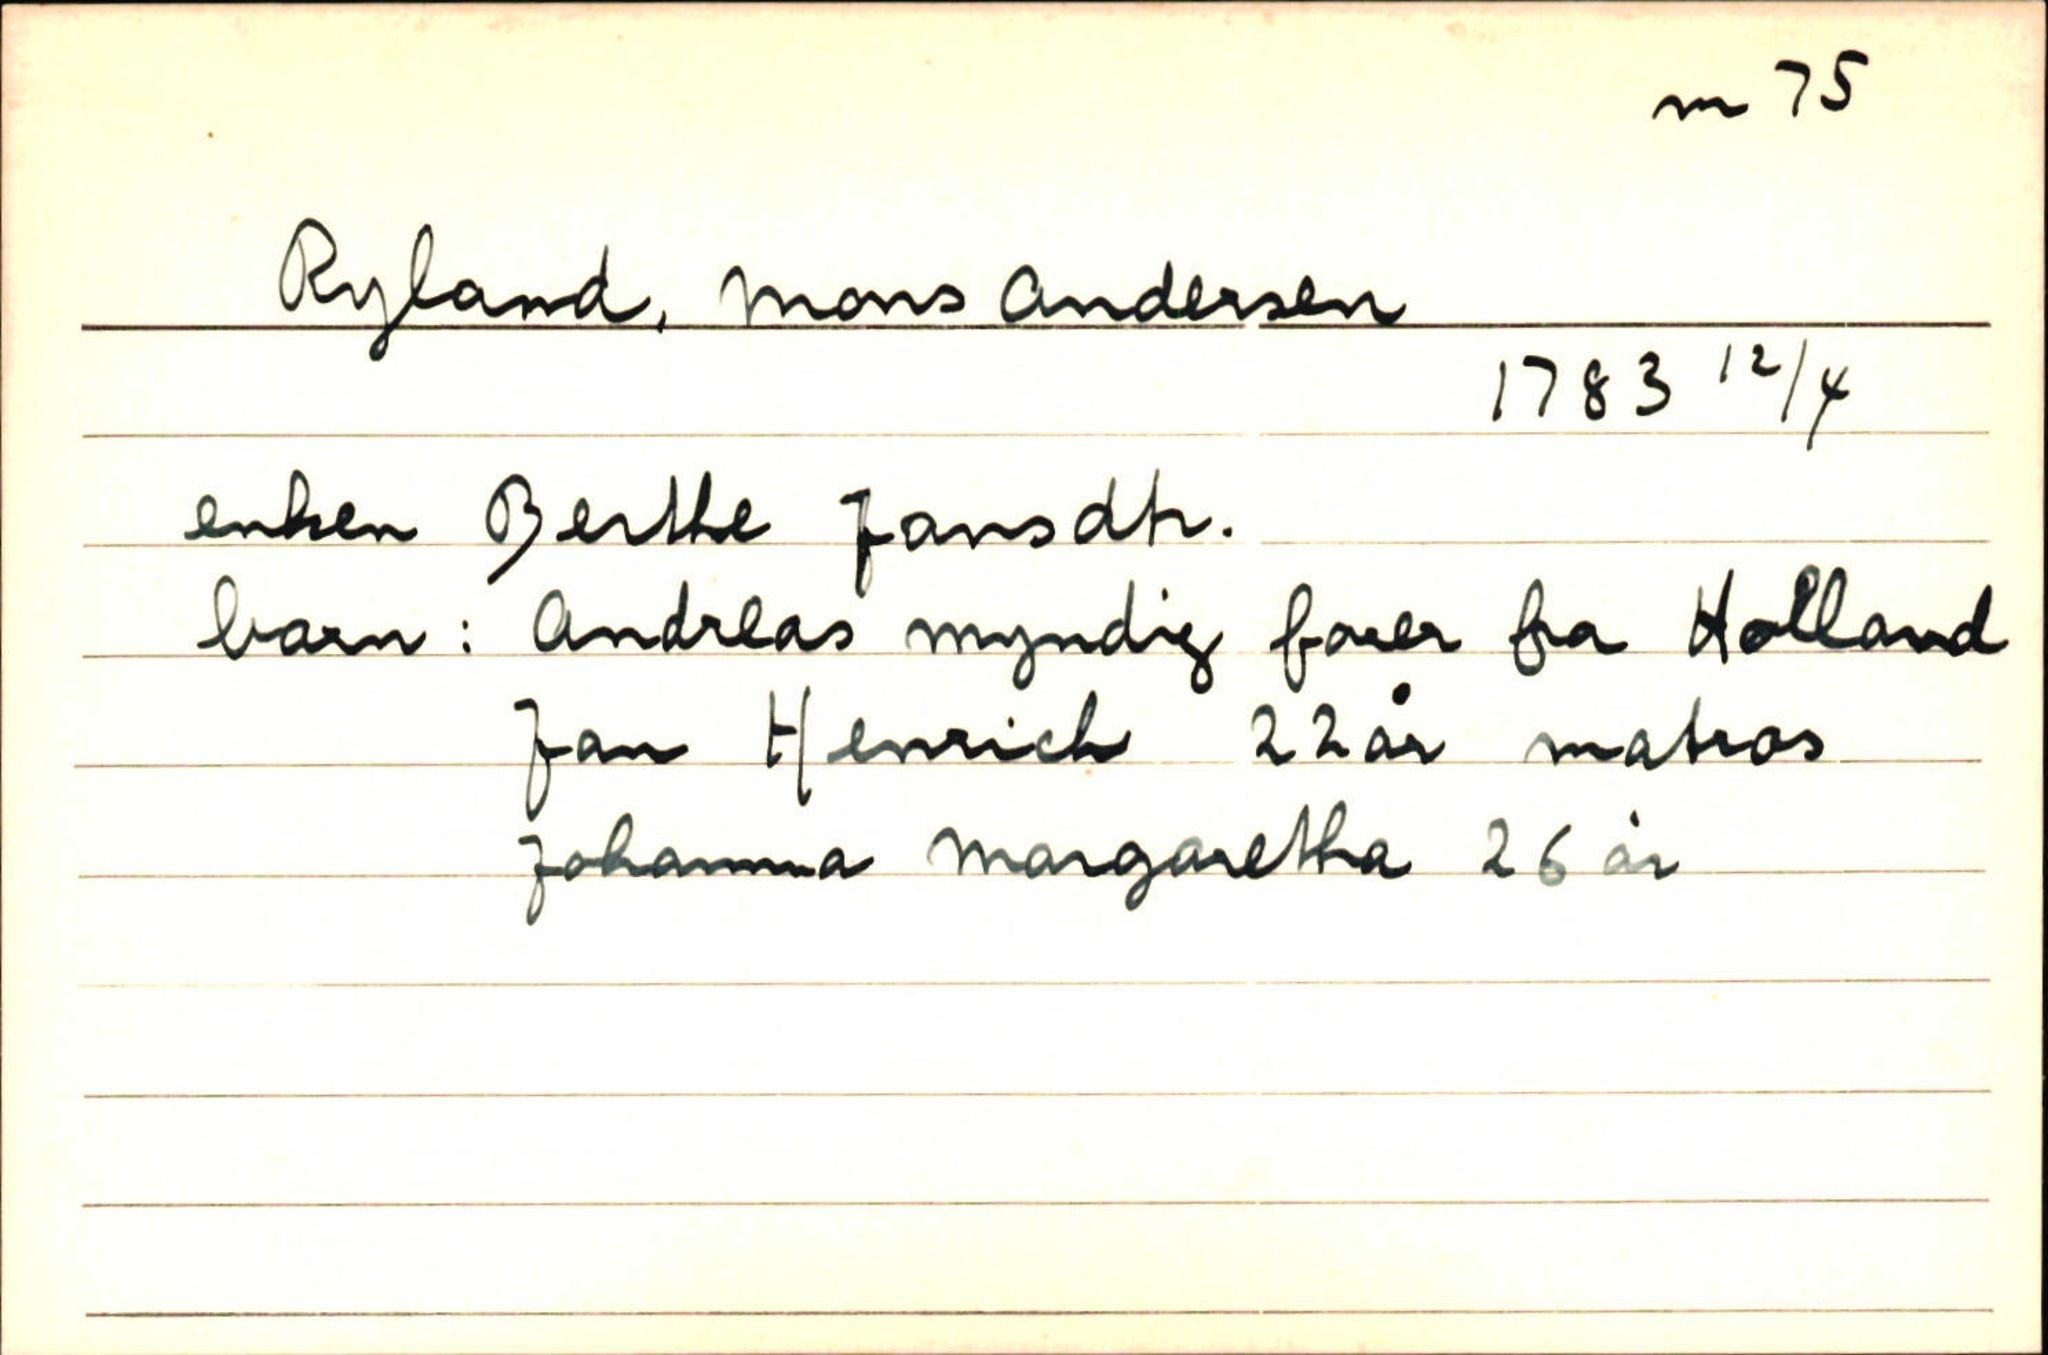 m 75
Ryland, Mons Andersen
1783 12/4
enken Berthe Jansdtr.
barn: Andreas myndig farer fra Holland
Jan Henrich 22 år matros
Johanna Margaretha 26 år